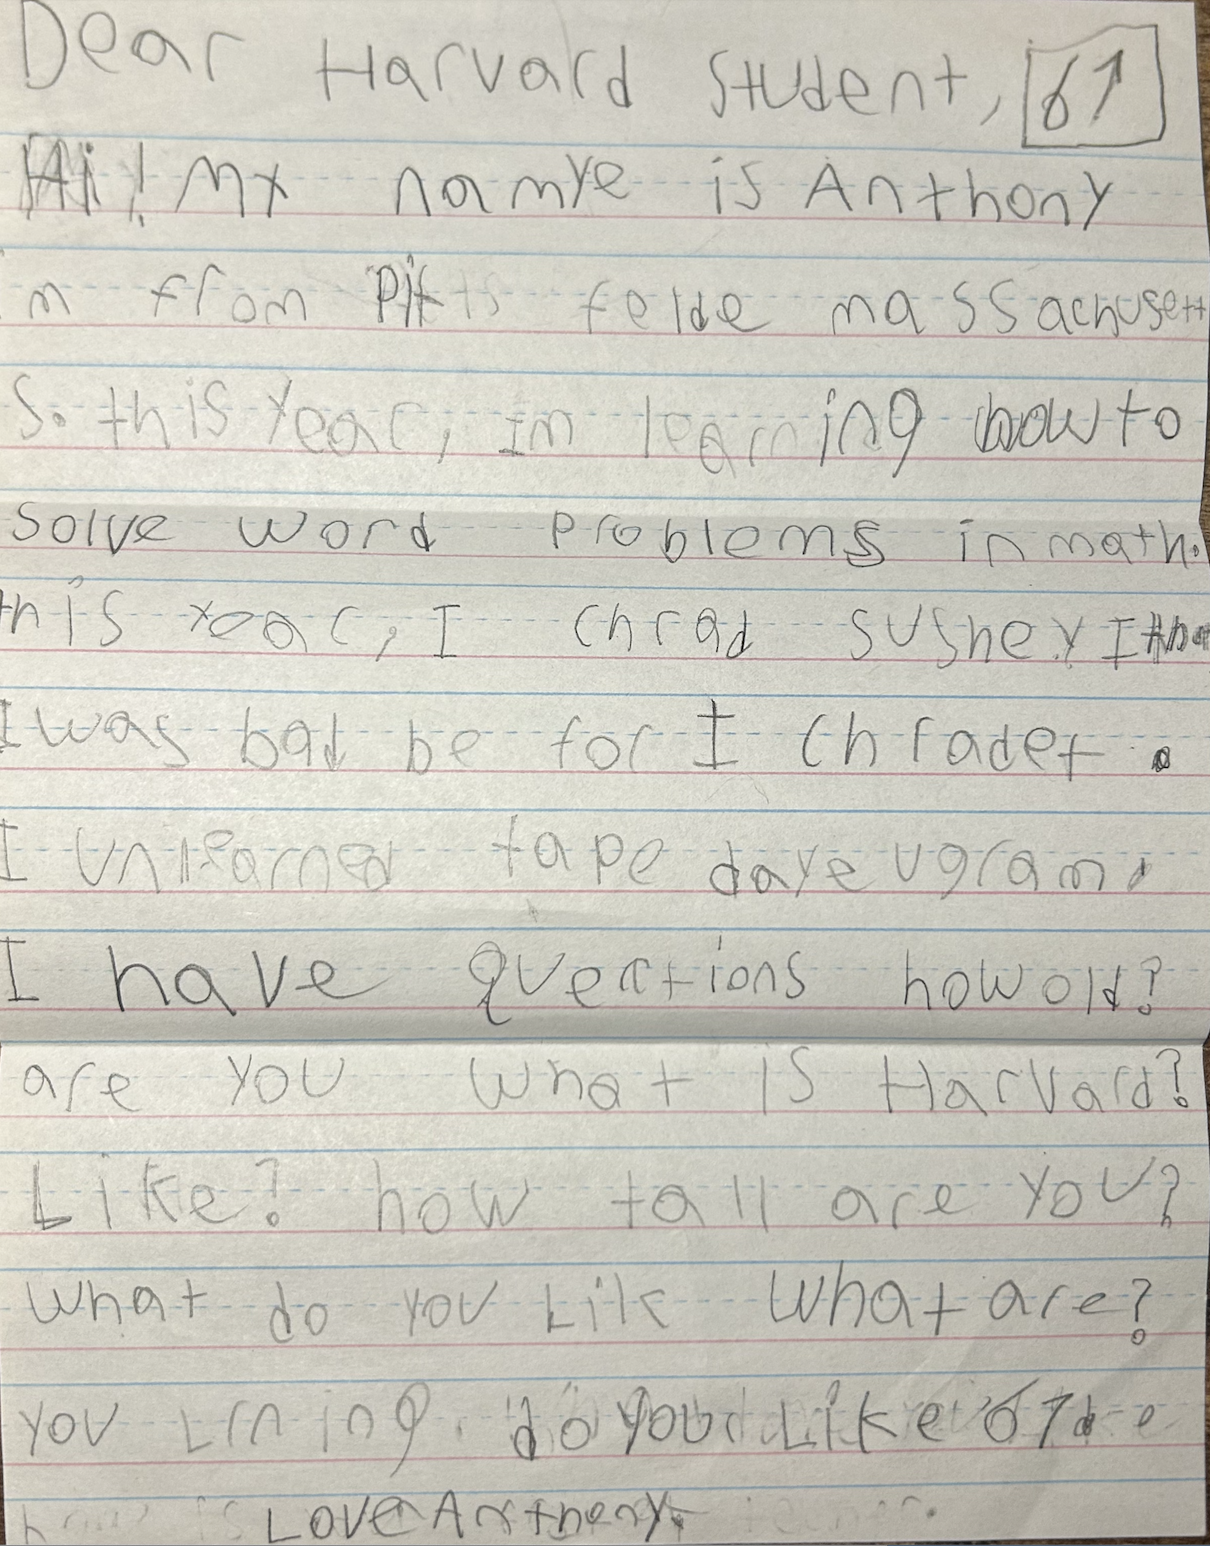 Dear Harvard Student, 67
Hi! My namye is Anthony
m from Pitts felde massachusett
s. this year, im learning how to
solve word problems in math.
his year, I chrad sushey I tha
I was bad be for I chradet.
I unlearned tape daye ugram.
I have quections how old?
are you what is Harvard?
Like? how tall are you?
what do you Lik what are?
you Lrning. do you Like 67
Love Anthony.